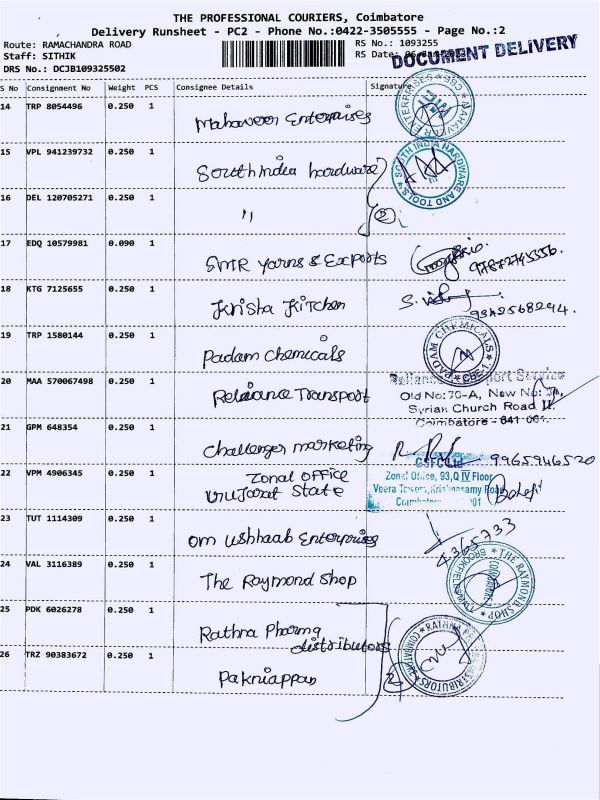 THE PROFESSIONAL COURIERS, Coimbatore
Delivery Runsheet - PC2 - Phone No.:0422-3505555 - Page No.:2
Route: RAMACHANDRA ROAD
RS No.: 1093255
Staff: SITHIK
RS Date:
DOCUMENT DELIVERY
DRS No.: DCJB109325502
S No Consignment No Weight PCS Consignee Details Signature
14 TRP 8054496 0.250 1 Mahaveer Enterprises
15 VPL 941239732 0.250 1 South India hardware
SOUTH INDIA HARDWARE AND TOOLS
16 DEL 120705271 0.250 1 " 2
17 EDQ 10579981 0.090 1 SMR Yarns & Exports
18 KTG 7125655 0.250 1 Krisha Kitchen
19 TRP 1580144 0.250 1 Padam Chemicals
PADAM CHEMICALS CBE-1
20 MAA 570067498 0.250 1 Reliance Transport
Old No: 70-A, New No:
Syrian Church Road
Coimbatore - 641 001.
21 GPM 648354 0.250 1 Challenger marketing 9965946520
22 VPM 4906345 0.250 1 Zonal Office
State
GSFC Ltd
Zonal Office, 93,Q IV Floor
Veera Towers, Krishnasamy Road
23 TUT 1114309 0.250 1 Om Enterprises 4365733
24 VAL 3116389 0.250 1 The Raymond Shop
THE RAYMOND SHOP
25 PDK 6026278 0.250 1 Rathna Pharma
distributors
26 TRZ 90383672 0.250 1 Pakniappan 2